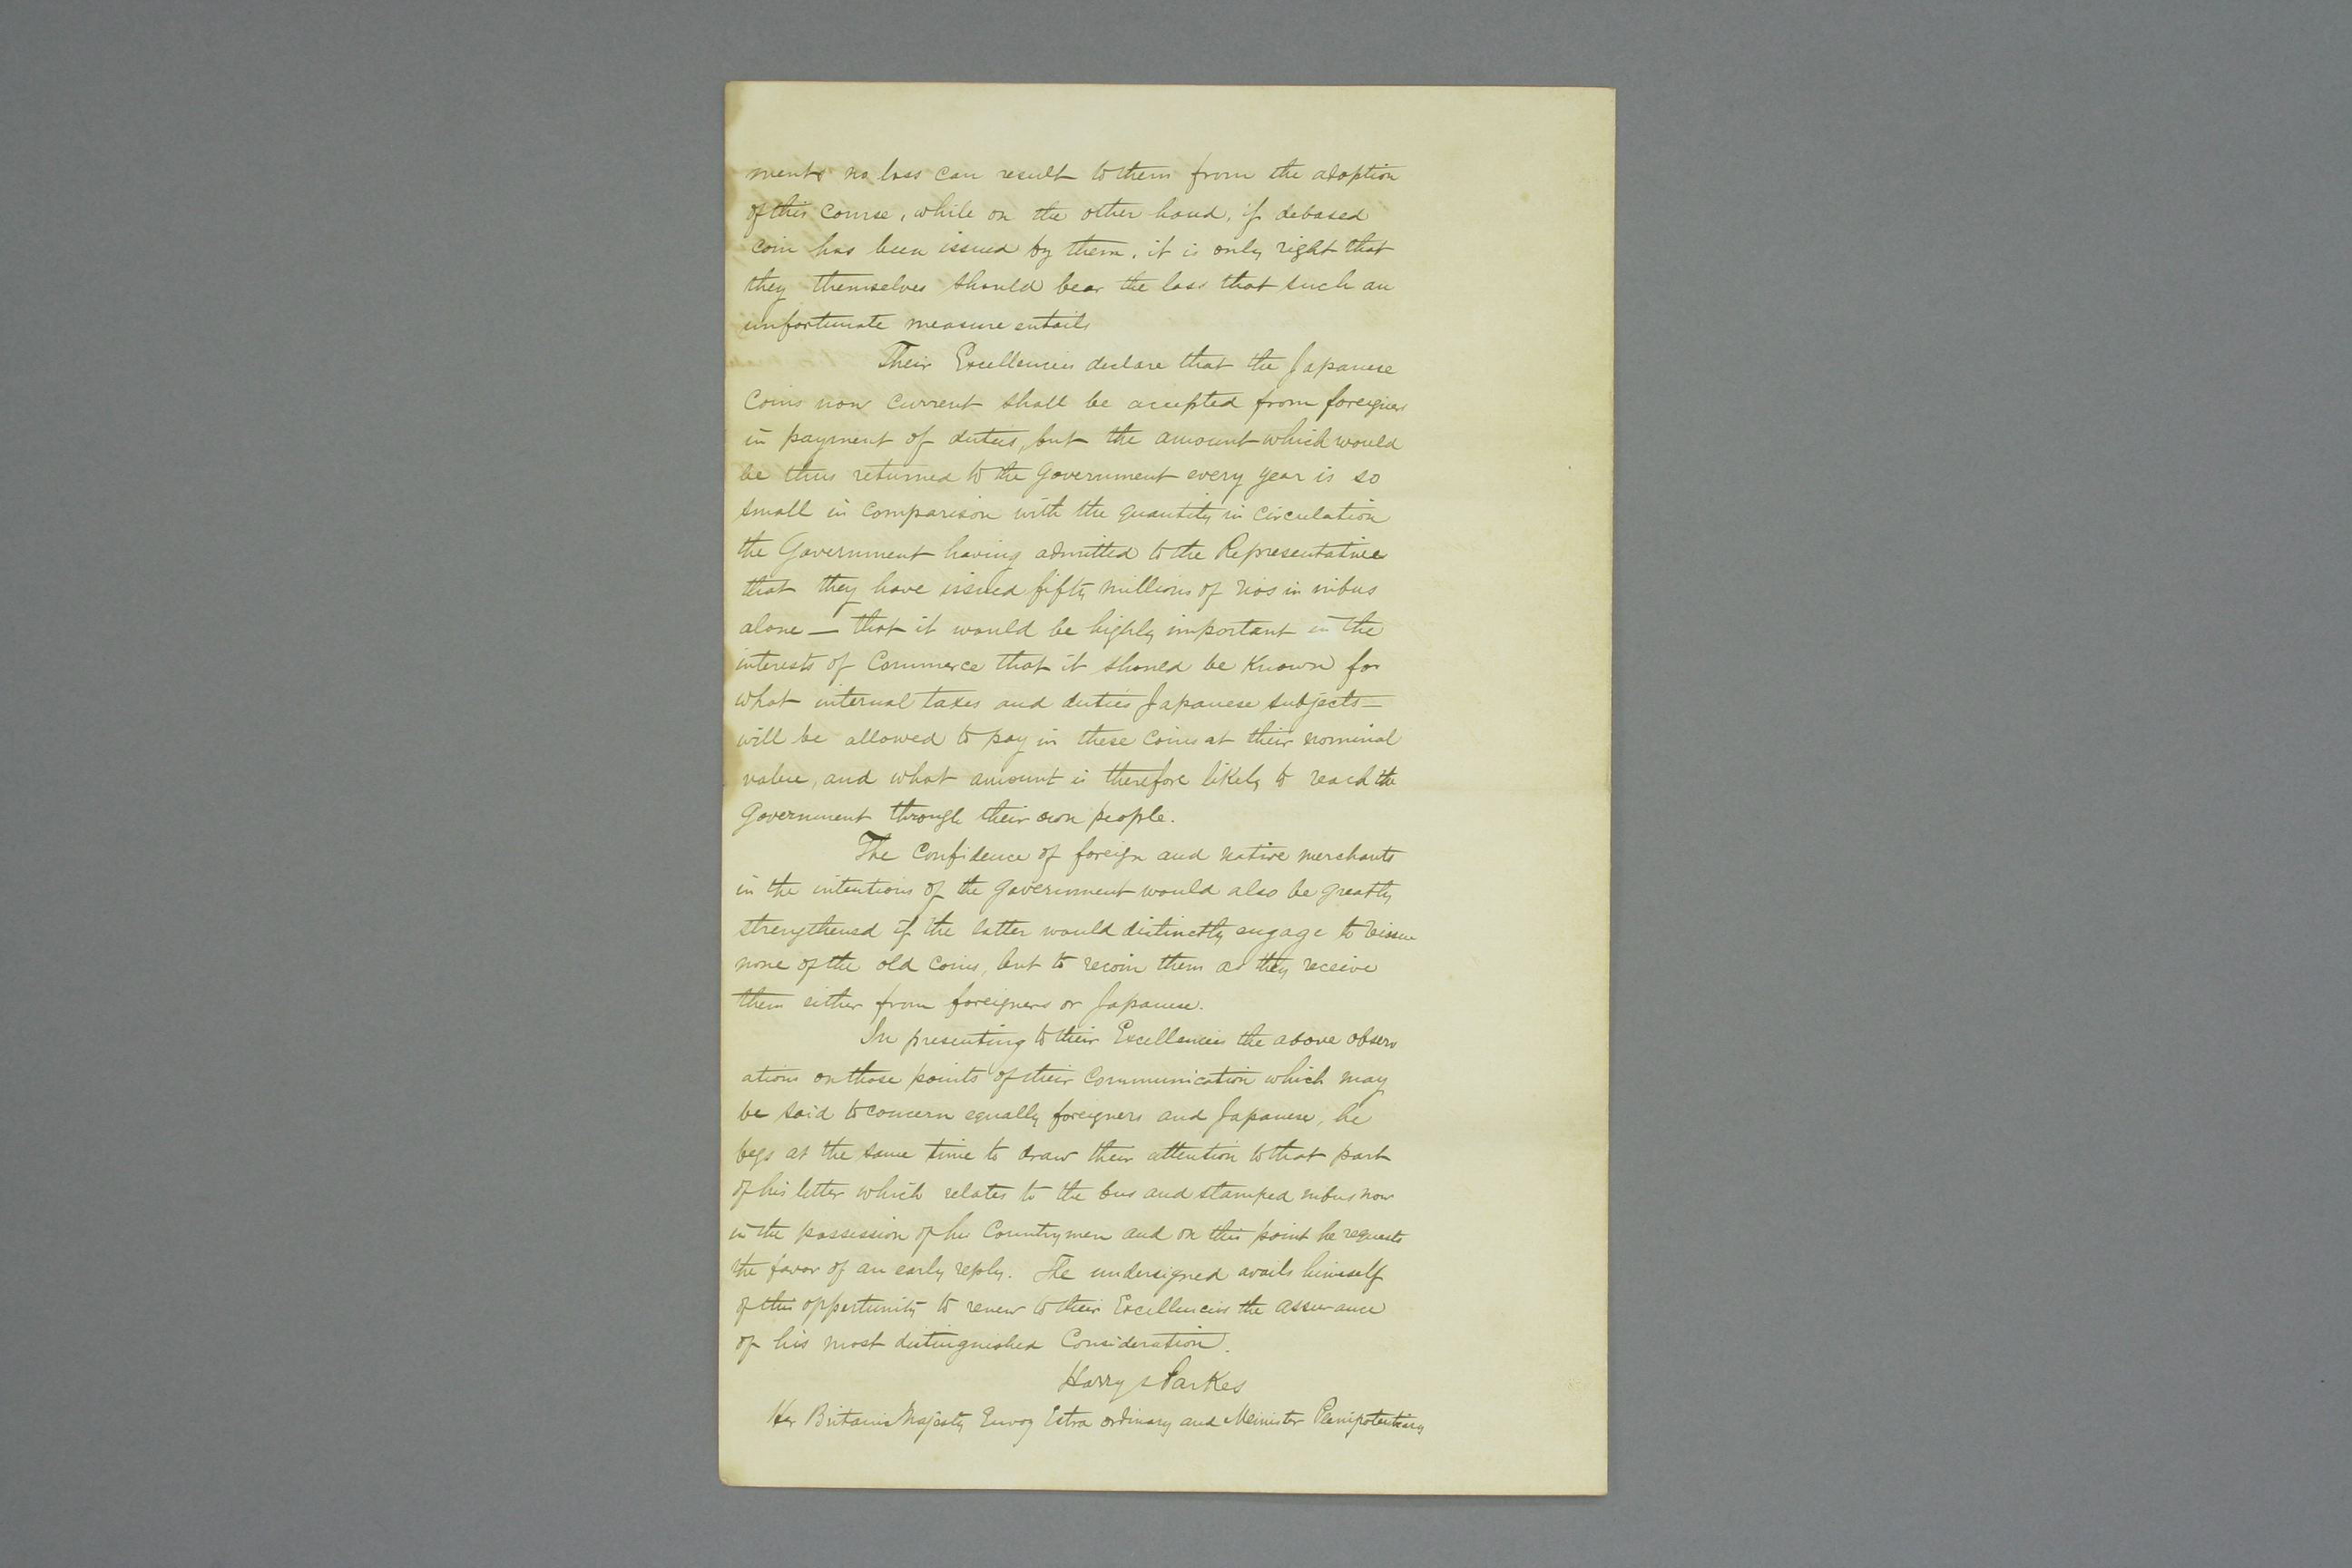 ments no loss can result to them from the adoption
of this course, while on the other hand, if debased
coin has been issued by them, it is only right that
they themselves should bear the loss that such an
unfortunate measure entails
Their Excellencies declare that the Japanese
Coins now current shall be accepted from foreigners
in payment of duties, but the amount which would
be thus returned to the Government every year is so
small in comparison with the quantity in circulation
the Government having admitted to the Representatives
that they have issued fifty millions of rios in nibus
alone — that it would be highly important in the
interests of Commerce that it should be known for
what internal taxes and duties Japanese subjects —
will be allowed to pay in these coins at their nominal
value, and what amount is therefore likely to reach the
Government through their own people.
The Confidence of foreign and native merchants
in the intentions of the Government would also be greatly
strengthened if the latter would distinctly engage to reissue
none of the old coins, but to recoin them as they receive
them either from foreigners or Japanese.
In presenting to their Excellencies the above observ
ations on those points of their Communication which may
be said to concern equally foreigners and Japanese, he
begs at the same time to draw their attention to that part
of his letter which relates to the bus and stamped nibus now
in the possession of his Countrymen and on this point he requests
the favor of an early reply. The undersigned avails himself
of this opportunity to renew to their Excellencies the assurance
of his most distinguished Consideration.
Harry S Parkes
Her Britanic Majesty Envoy Extra ordinary and Meinister Plenipotentiary